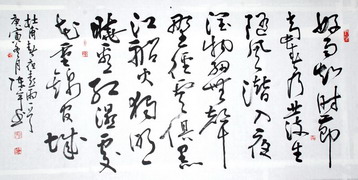 好雨知时节
当春乃发生
随风潜入夜
润物细无声
野径云俱黑
江船火独明
晓看红湿处
花重锦官城
杜甫春夜喜雨
庚寅年月